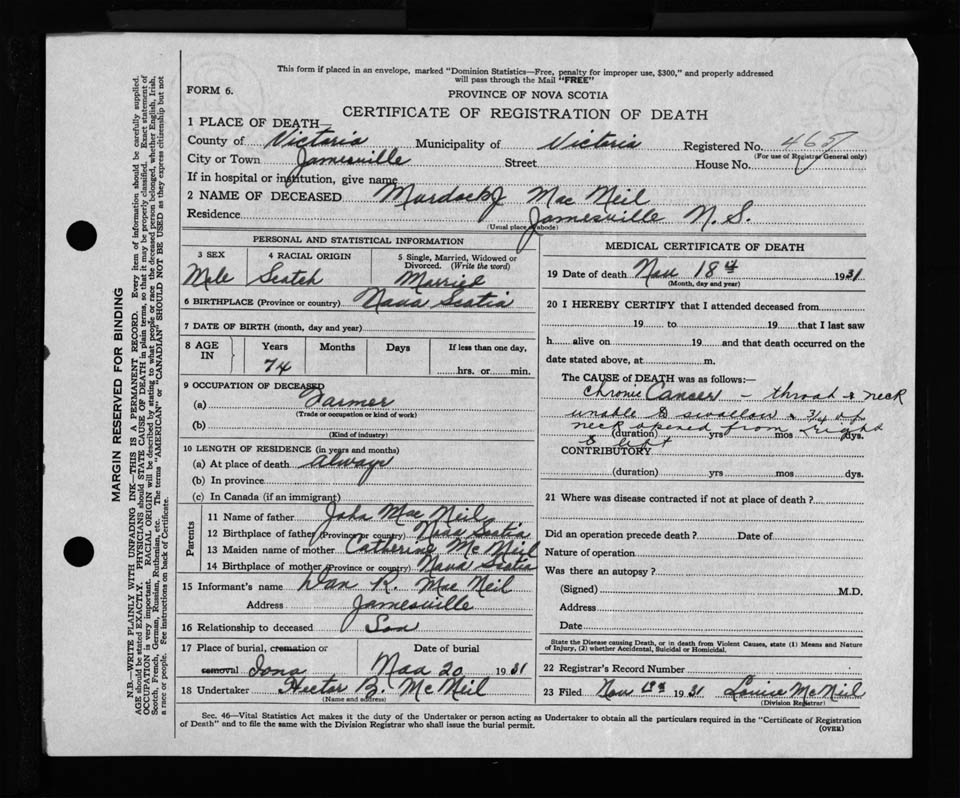 This form if placed in an envelope, marked "Dominion Statistics—Free, penalty for improper use, $300," and properly addressed
will pass through the Mail "FREE"
FORM 6.
PROVINCE OF NOVA SCOTIA
CERTIFICATE OF REGISTRATION OF DEATH
1 PLACE OF DEATH—
County of Victoria Municipality of Victoria Registered No.
(For use of Registrar General only)
City or Town Jamesville Street House No.
If in hospital or institution, give name
2 NAME OF DECEASED Murdock J Mac Neil
Residence Jamesville N. S.
(Usual place of abode)
PERSONAL AND STATISTICAL INFORMATION
3 SEX 4 RACIAL ORIGIN 5 Single, Married, Widowed or Divorced. (Write the word)
Male Scotch Married
6 BIRTHPLACE (Province or country) Nova Scotia
7 DATE OF BIRTH (month, day and year)
8 AGE IN Years Months Days If less than one day,
74 hrs. or min.
9 OCCUPATION OF DECEASED
(a) Farmer
(Trade or occupation or kind of work)
(b)
(Kind of industry)
10 LENGTH OF RESIDENCE (in years and months)
(a) At place of death always
(b) In province
(c) In Canada (if an immigrant)
Parents
11 Name of father John Mac Neil
12 Birthplace of father (Province or country) Nova Scotia
13 Maiden name of mother Catherine McNeil
14 Birthplace of mother (Province or country) Nova Scotia
15 Informant's name Dan R. Mac Neil
Address Jamesville
16 Relationship to deceased Son
17 Place of burial, cremation or Date of burial
removal Iona Nov 20 1931
18 Undertaker Hector B. McNeil
(Name and address)
MEDICAL CERTIFICATE OF DEATH
19 Date of death Nov 18th 1931
(Month, day and year)
20 I HEREBY CERTIFY that I attended deceased from
19 to 19 that I last saw
h alive on 19 and that death occurred on the
date stated above, at m.
The CAUSE of DEATH was as follows:—
Chronic Cancer – throat & neck
unable to swallow & 3/4 of
neck opened from right
(duration) yrs mos dys.
& left
CONTRIBUTORY
(duration) yrs mos dys.
21 Where was disease contracted if not at place of death?
Did an operation precede death? Date of
Nature of operation
Was there an autopsy?
(Signed) M.D.
Address
Date
State the Disease causing Death, or in death from Violent Causes, state (1) Means and Nature
of Injury, (2) whether Accidental, Suicidal or Homicidal.
22 Registrar's Record Number
23 Filed Nov 1931 Louise McNeil
(Division Registrar)
Sec. 46—Vital Statistics Act makes it the duty of the Undertaker or person acting as Undertaker to obtain all the particulars required in the "Certificate of Registration
of Death" and to file the same with the Division Registrar who shall issue the burial permit.
(OVER)
MARGIN RESERVED FOR BINDING
N.B.—WRITE PLAINLY WITH UNFADING INK—THIS IS A PERMANENT RECORD. Every item of information should be carefully supplied.
AGE should be stated EXACTLY. PHYSICIANS should STATE CAUSE OF DEATH in plain terms, so that it may be properly classified. Exact statement of
OCCUPATION is very important. RACIAL ORIGIN will be described by stating to what people or race the deceased person belonged, whether English, Irish,
Scotch, French, German, Russian, Ruthenian, etc. The terms "AMERICAN" or "CANADIAN" SHOULD NOT BE USED as they express citizenship but not
a race or people. See instructions on back of Certificate.